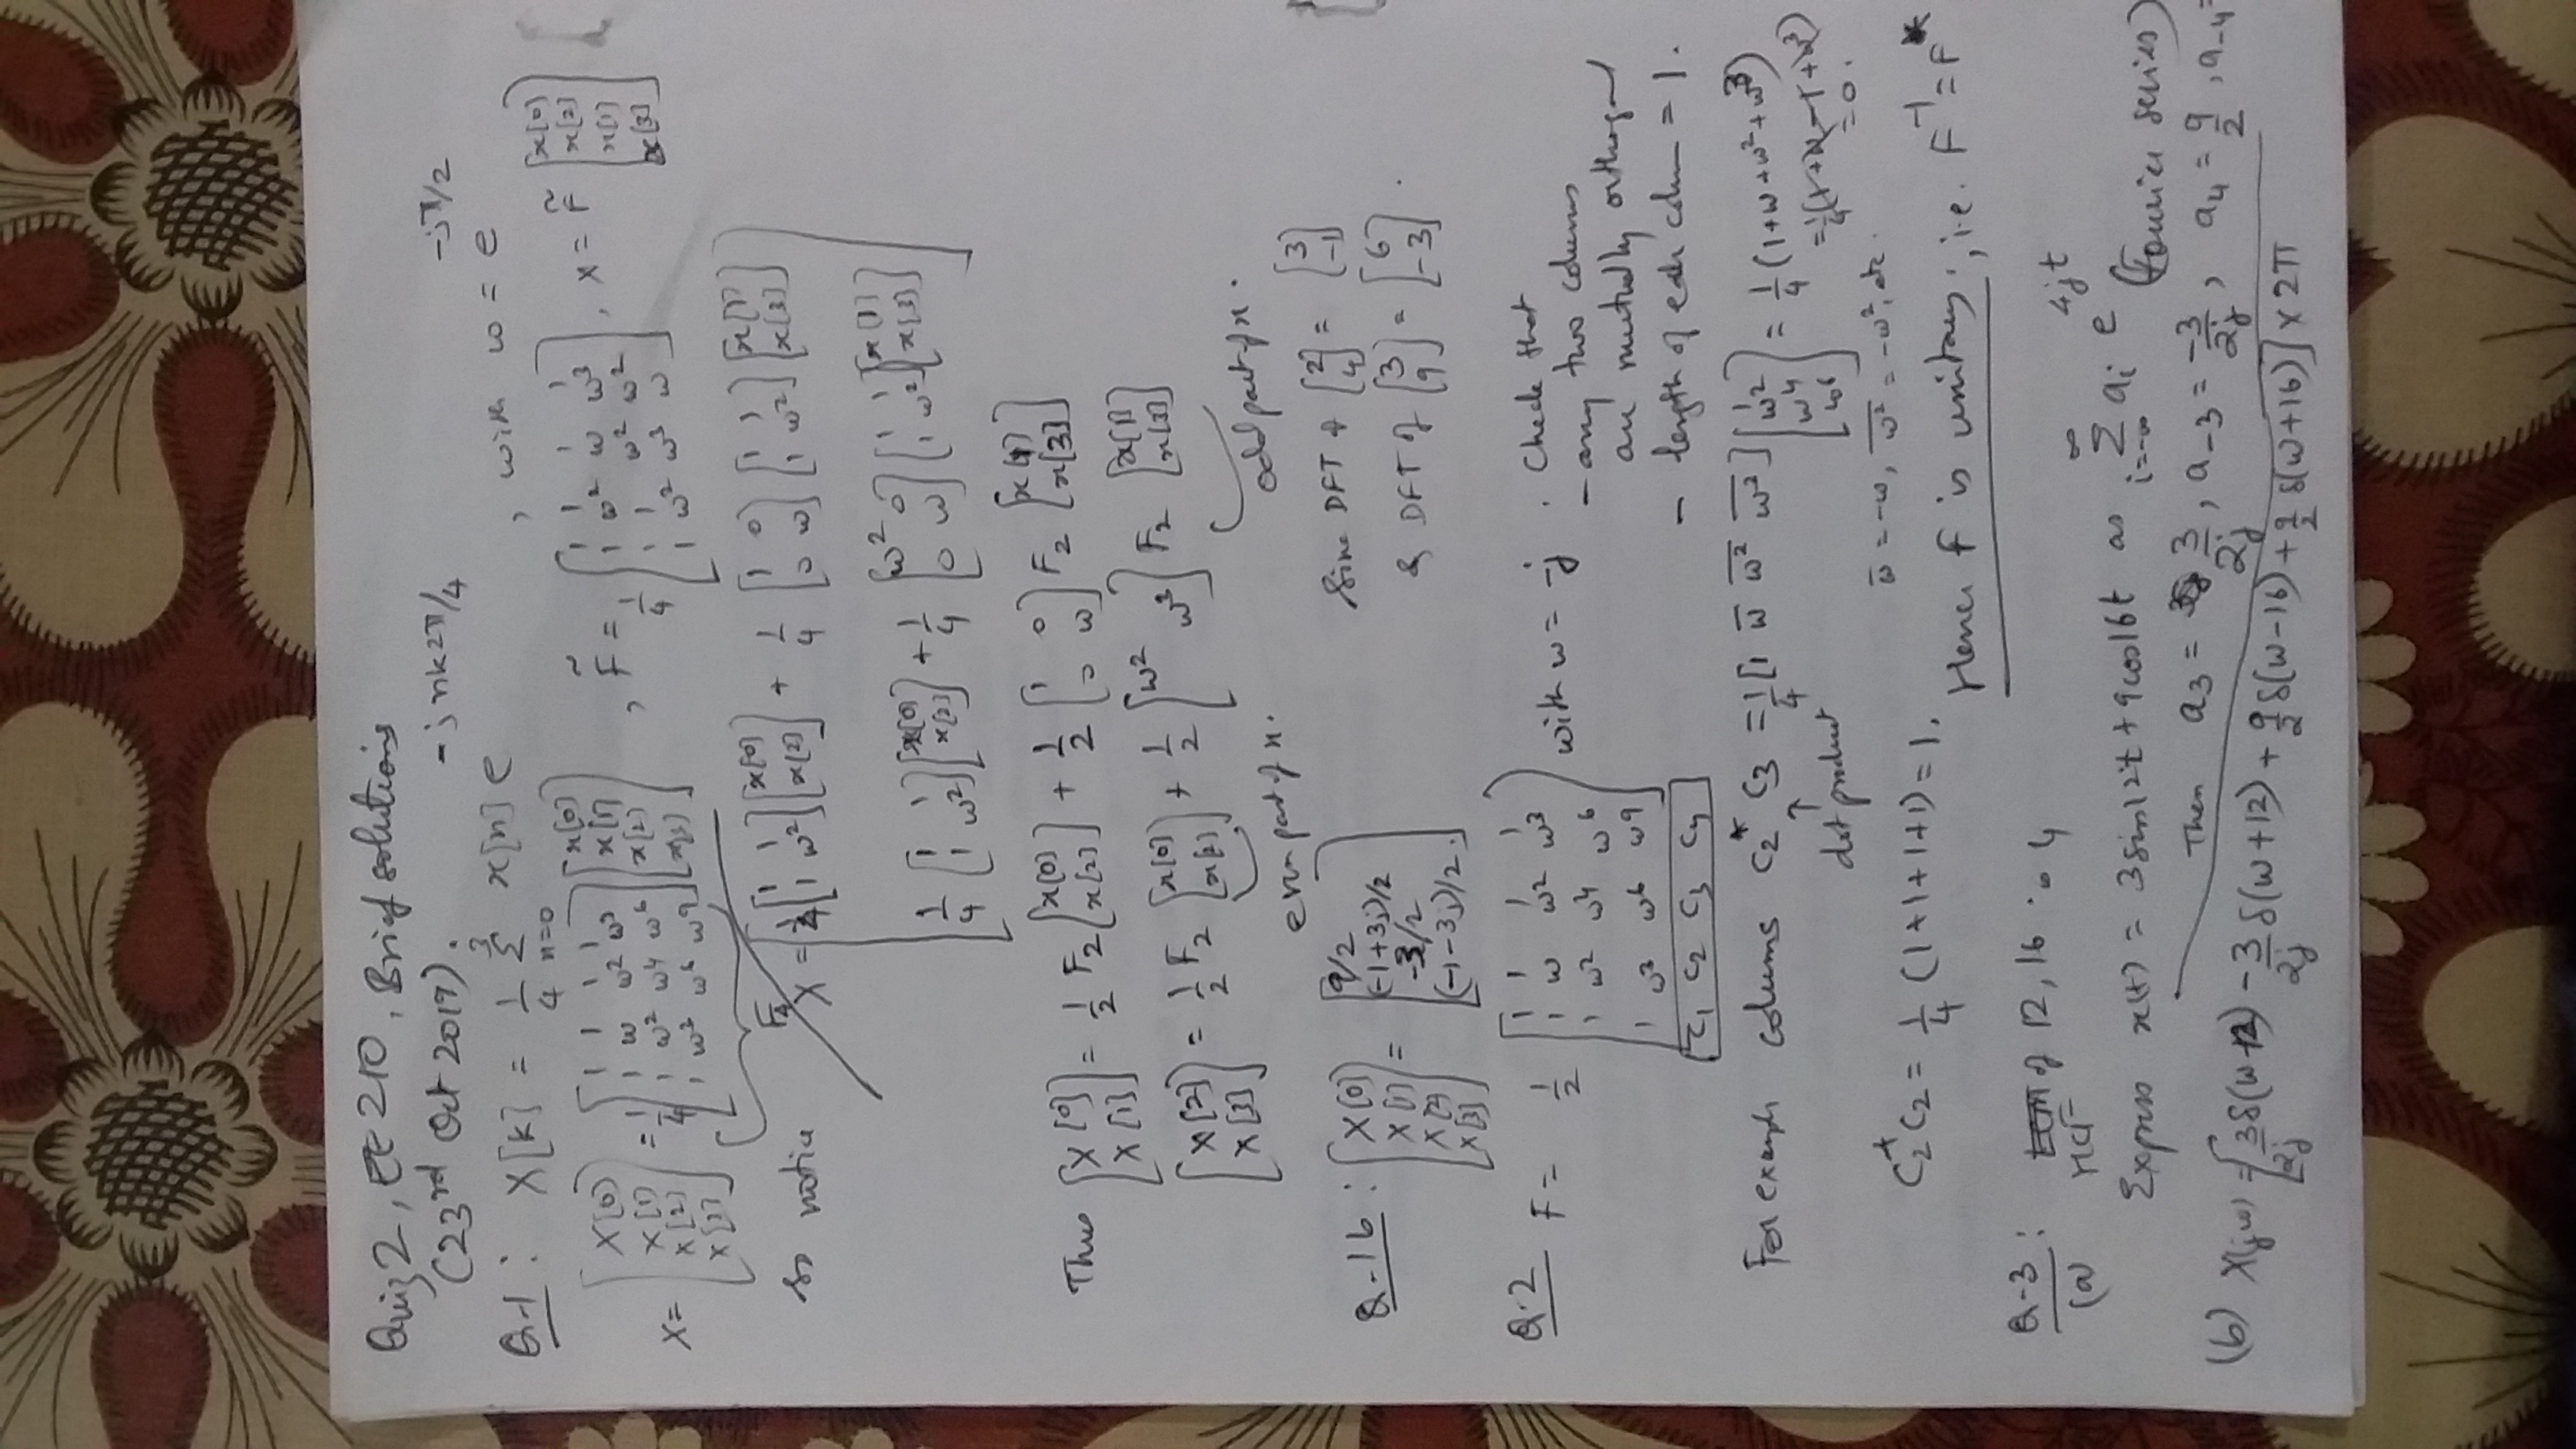 Quiz 2, EE 210, Brief solutions
(23rd Oct 2019).
Q-1 : X[k] = 1/4 Σ_{n=0}^{3} x[n] e^{-jnk2π/4} , with ω = e^{-jπ/2}
X = [X[0] X[1] X[2] X[3]] = 1/4 [1 1 1 1; 1 ω ω² ω³; 1 ω² ω⁴ ω⁶; 1 ω³ ω⁶ ω⁹] [x[0] x[1] x[2] x[3]] , F̃ = 1/4 [1 1 1 1; 1 ω² ω ω³; 1 1 ω² ω²; 1 ω² ω³ ω] , X = F̃ [x[0] x[2] x[1] x[3]]
F₄
so notice X = [1/4 [1 1; 1 ω²] [x[0] x[2]] + 1/4 [1 0; 0 ω] [1 1; 1 ω²] [x[1] x[3]]
1/4 [1 1; 1 ω²] [x[0] x[2]] + 1/4 [ω² 0; 0 ω] [1 1; 1 ω²] [x[1] x[3]]]
Thus [X[0] X[1]] = 1/2 F₂ [x[0] x[2]] + 1/2 [1 0; 0 ω] F₂ [x[1] x[3]]
[X[2] X[3]] = 1/2 F₂ [x[0] x[2]] + 1/2 [ω² ω³] F₂ [x[1] x[3]]
even part of x. odd part of x.
Q-1b : [X[0] X[1] X[2] X[3]] = [9/2 (-1+3j)/2 -3/2 (-1-3j)/2.] Since DFT of [2 4] = [3 -1]
& DFT of [3 9] = [6 -3].
Q.2 F = 1/2 [1 1 1 1; 1 ω ω² ω³; 1 ω² ω⁴ ω⁶; 1 ω³ ω⁶ ω⁹] with ω = -j : Check that
C₁ C₂ C₃ C₄
- any two columns
are mutually orthogonal
- length of each column = 1.
For example columns C₂* C₃ = 1/4 [1 ω̄ ω̄² ω̄³] [1 ω² ω⁴ ω⁶] = 1/4 (1+ω+ω²+ω³)
dot product
= 0.
C₂* C₂ = 1/4 (1+1+1+1) = 1. ω̄ = -ω, ω̄² = -ω², etc.
Hence F is unitary; i.e. F⁻¹ = F*
Q-3 : HCF of 12, 16 is 4
(a) Express x(t) = 3 sin12t + 9 cos16t as Σ_{i=-∞}^{∞} a_i e^{4jt} (Fourier series)
Then a₃ = 3/2j, a₋₃ = -3/2j, a₄ = 9/2, a₋₄ =
(b) X(jω) = [3/2j δ(ω-12) - 3/2j δ(ω+12) + 9/2 δ(ω-16) + 9/2 δ(ω+16)] x 2π